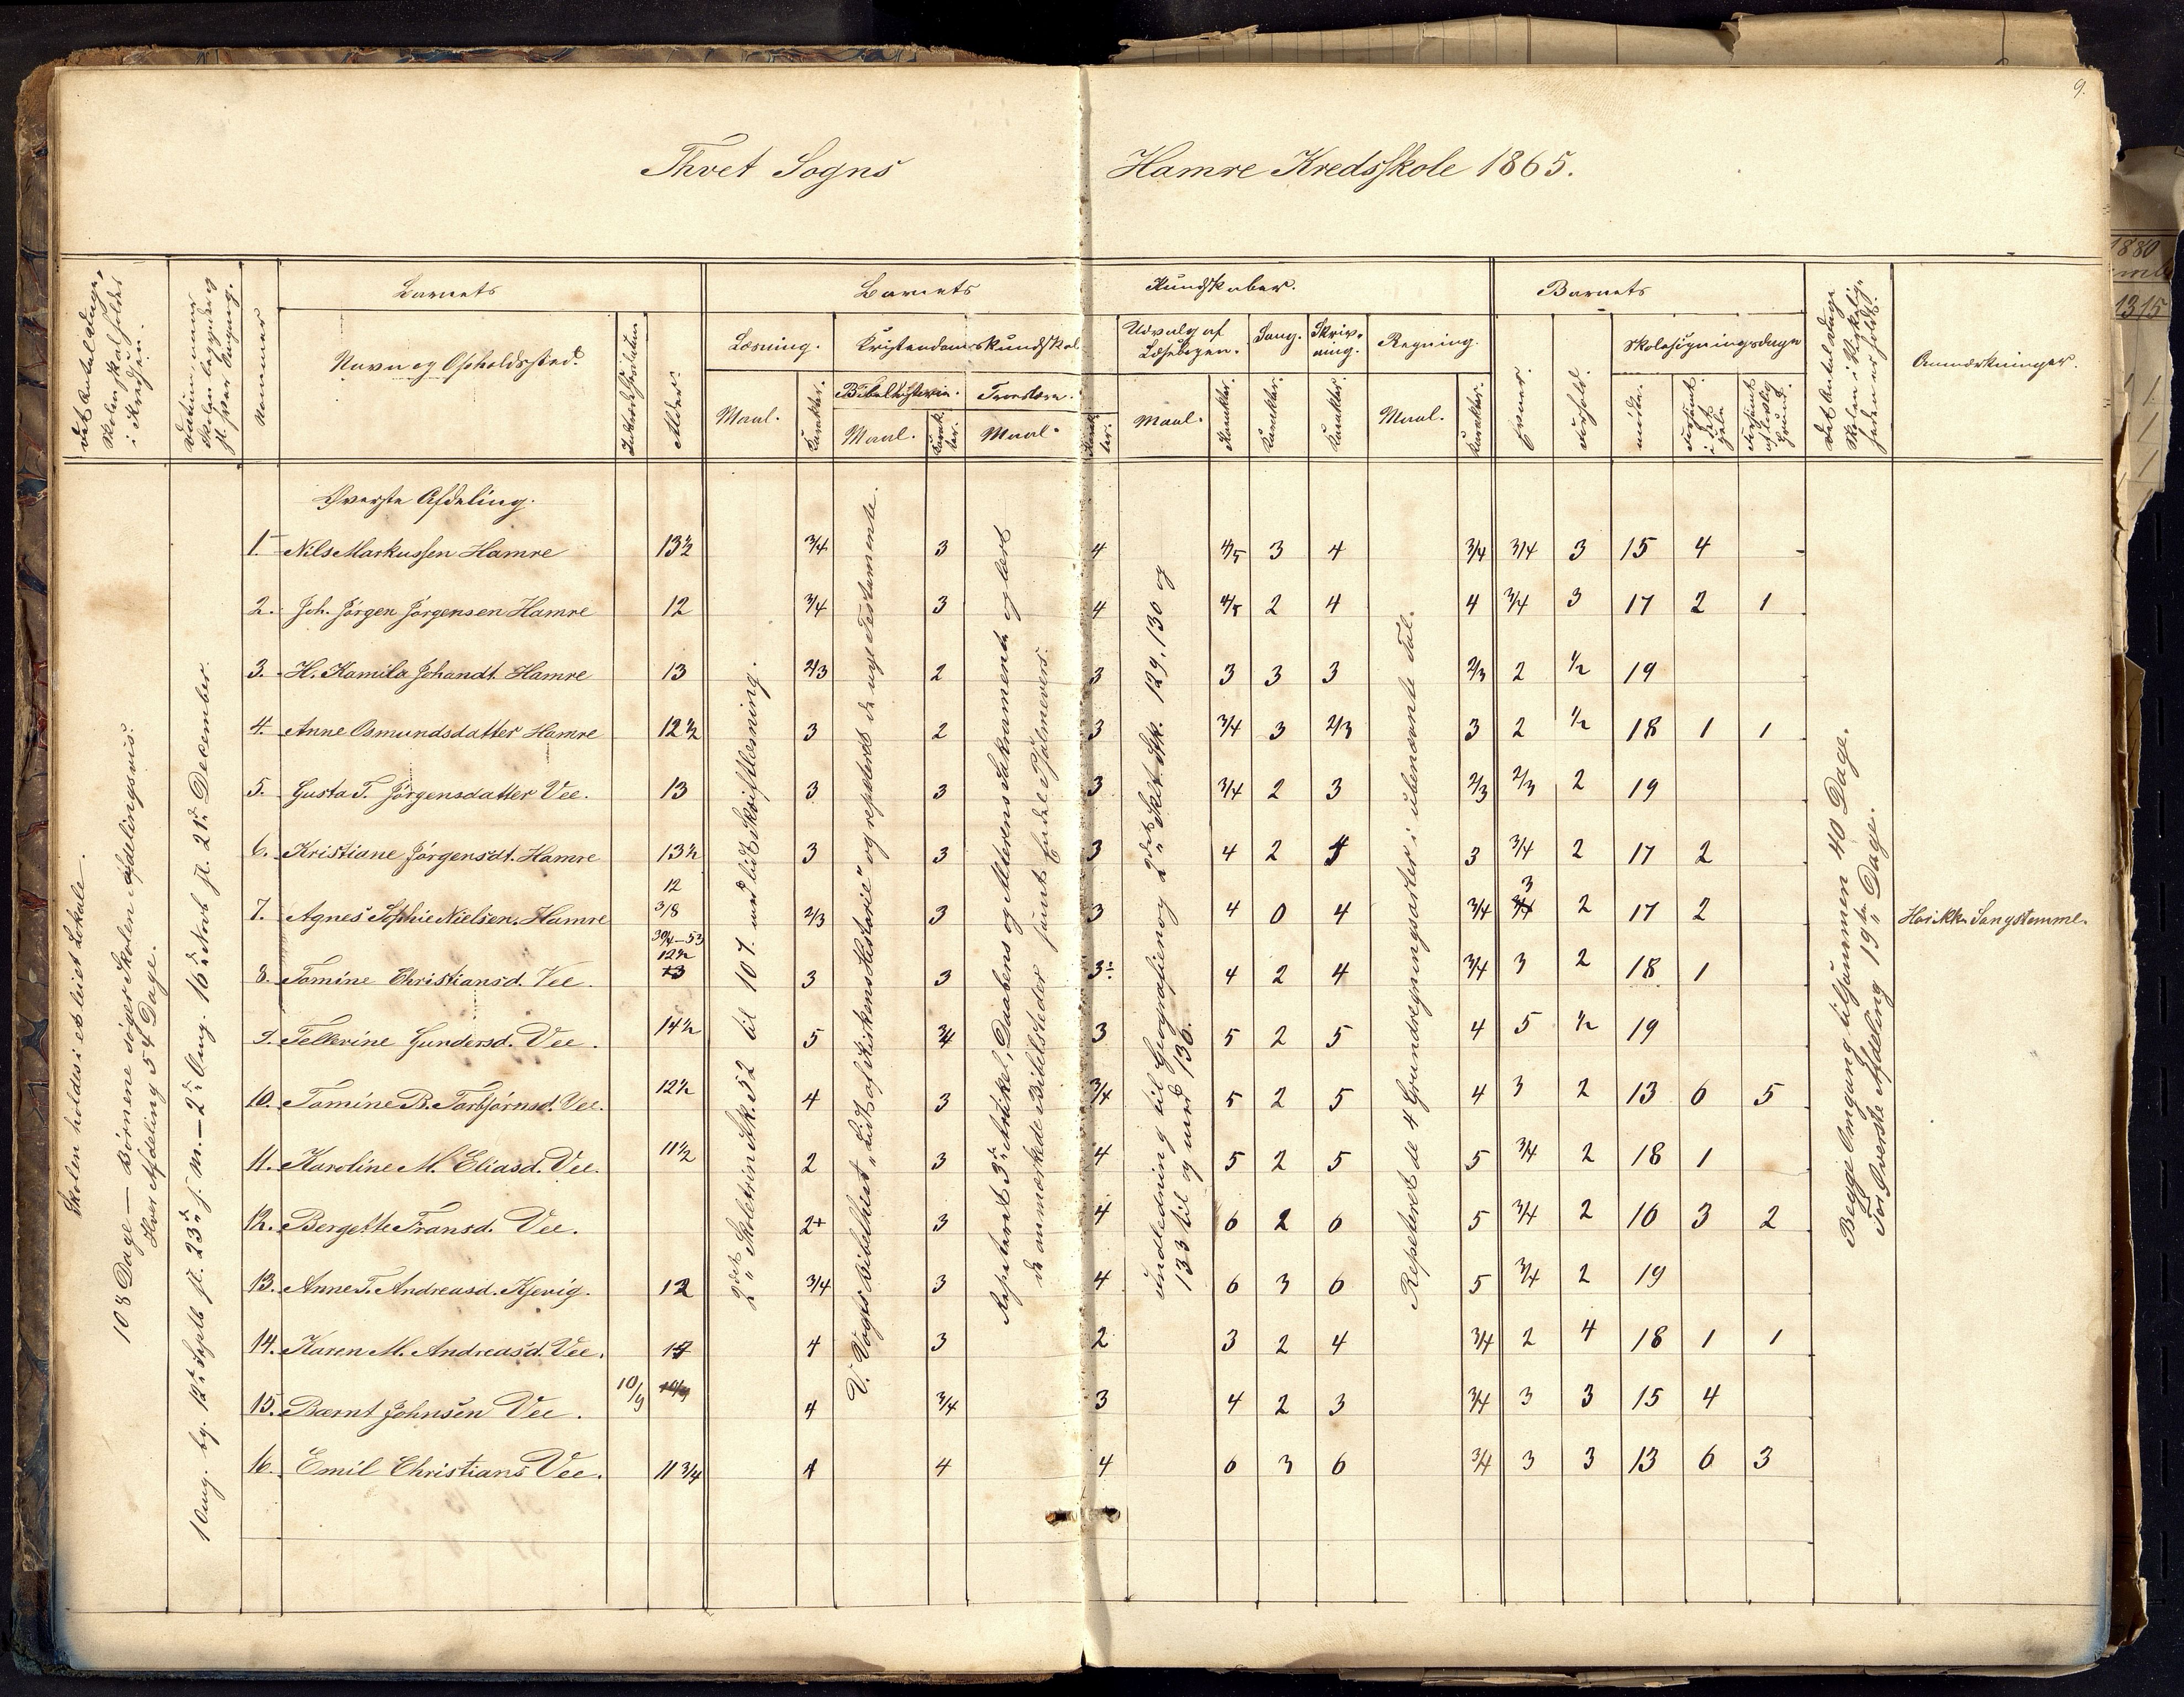 9.
Thvet Sogns Hamre Kredsskole 1865.
Det Antal Dage, Skolen skal holdes i Kredsen.
Datum, naar Skolen begynder og slutter hver Omgang.
Nummer
Barnets
Navn og Opholdssted.
Alder.
Barnets Kundskaber.
Læsning.
Maal.
Karakter.
Kristendomskundskab
Bibelhistorie.
Maal.
Karakter.
Troeslære.
Maal.
Karakter.
Udvalg af Læsebogen.
Maal.
Karakter.
Sang.
Karakter.
Skrivning.
Karakter.
Regning.
Maal.
Karakter.
Barnets
Evner.
Forhold.
Skolesøgningsdage
mødte.
forsømt i det Hele
forsømt af lovlig Grund.
Det Antal Dage Skolen i Virkeligheden er holdt.
Anmærkninger.
Skolen holdes i et leiet Lokale.
108 Dage — Børnene søger Skolen afdelingsvis.
Hver Afdeling 54 Dage.
1 Omg. bg. 12te Septb sl. 23de s. M. — 2den Omg. 16de Novb sl. 21de December.
2det Skoletrin Stk. 52 til 107 med lidt Skriftlesning.
V. Vogts Bibelhist. "Lidt af Kirkens Historie" og repeteret de nye Testamente.
Repeteret 3die Artikel, Daabens og Alterens Sakramente og lært
de anmærkede Bibelsteder samt Endel Psalmevers.
Indledning til Geografien og 2det Skst. Stk. 129, 130 og
133 til og med 136.
Repeteret de 4 Grundregningsarter i ubenævnte Tal.
Begge Omgang tilsammen 40 Dage.
For Øverste Afdeling 19ten Dage.
Øverste Afdeling.
1. Nils Markussen Hamre 13½ 3/4 3 4 4/5 3 4 3/4 3/4 3 15 4
2. Joh. Jørgen Jørgensen Hamre 12 3/4 3 4 4/5 2 4 4 3/4 3 17 2 1
3. H. Kamila Johandt. Hamre 13 2/3 2 3 3 3 3 2/3 2 1/2 19
4. Anne Osmundsdatter Hamre 12½ 3 2 3 3/4 3 2/3 3 2 1/2 18 1 1
5. Gusta T. Jørgensdatter Vee. 13 3 3 3 3/4 2 3 2/3 2/3 2 19
6. Kristiane Jørgensdt. Hamre 13½ 3 3 3 4 2 4 3 3/4 2 17 2
7. Agnes Sophie Nielsen, Hamre 12 3/8 2/3 3 3 4 0 4 3/4 3 2 17 2 Har ikke Sangstemme.
8. Tomine Christiansd. Vee. 30/4–53 12½ 13 3 3 3 4 2 4 3/4 3 2 18 1
9. Tellerine Gundersd. Vee. 14½ 5 3/4 3 5 2 5 4 5 1/2 19
10. Tomine B. Torbjørnsd. Vee. 12½ 4 3 3/4 5 2 5 4 3 2 13 6 5
11. Karoline M. Eliasd. Vee. 11½ 2 3 4 5 2 5 5 3/4 2 18 1
12. Bergethe Fransd. Vee. 2+ 3 4 6 2 6 5 3/4 2 16 3 2
13. Anne T. Andreasd. Kjevig. 12 3/4 3 4 6 3 6 5 3/4 2 19
14. Karen M. Andreasd. Vee. 14 4 3 2 3 2 4 3/4 2 4 18 1 1
15. Bærnt Johnsen Vee. 10/9 4 3/4 3 4 2 3 3/4 3 3 15 4
16. Emil Christians Vee. 11 3/4 4 4 4 6 3 6 3/4 3 3 13 6 3
1880
1315